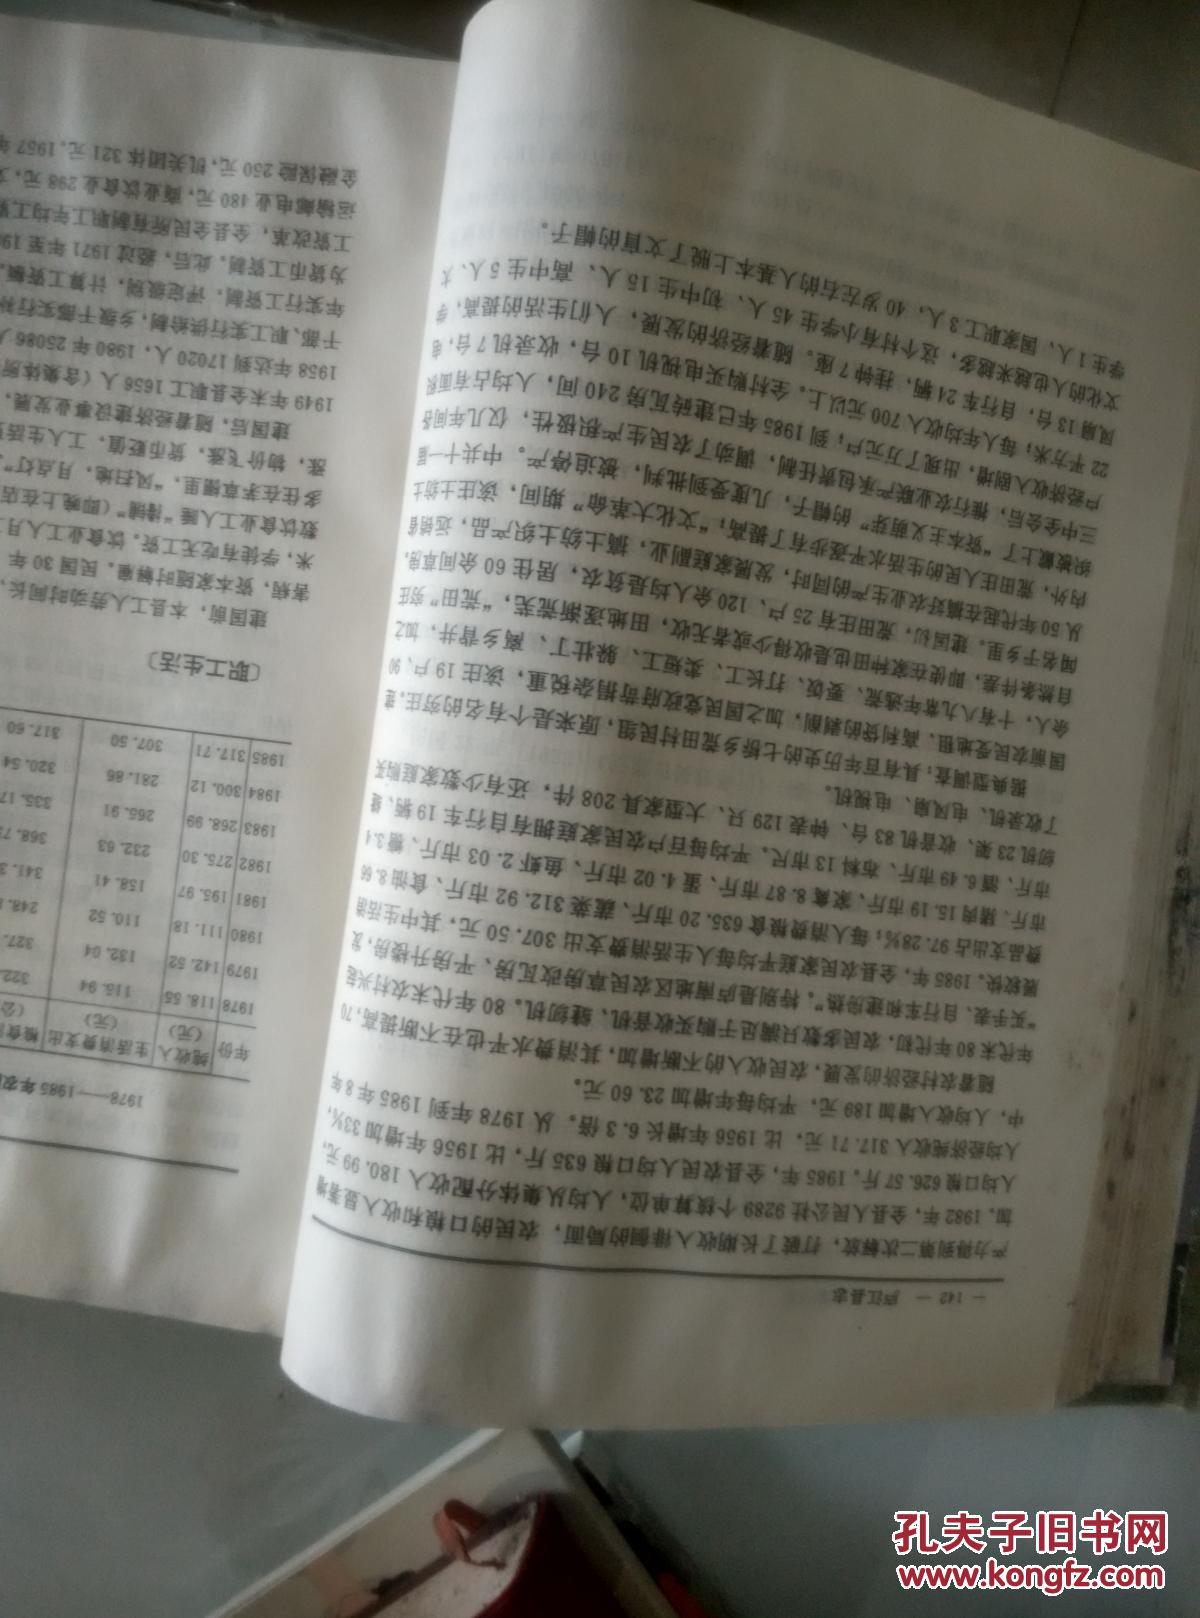 — 142 — 庐江县志
产力得到第二次解放，打破了长期收入徘徊的局面，农民的口粮和收入显著增
加。1982年，全县人民公社9289个核算单位，人均从集体分配收入180.99元，
人均口粮626.57斤。1985年，全县农民人均口粮635斤，比1956年增加33%，
人均经济纯收入317.71元，比1956年增长6.3倍。从1978年到1985年8年
中，人均收入增加189元，平均每年增加23.60元。
随着农村经济的发展，农民收入的不断增加，其消费水平也在不断提高，70
年代末80年代初，农民多数只满足于购买收音机、缝纫机。80年代末农村兴起
“买手表、自行车和建房热”。特别是庐南地区农民草房改瓦房、平房升楼房，发
展较快。1985年，全县农民家庭平均每人生活消费支出307.50元，其中生活消
费品支出占97.28%；每人消费粮食635.20市斤、蔬菜312.92市斤、食油8.66
市斤、猪肉15.19市斤、家禽8.87市斤、蛋4.02市斤、鱼虾2.03市斤、糖3.4
市斤、酒6.49市斤、布料13市尺。平均每百户农民家庭拥有自行车19辆、缝
纫机23架、收音机83台、钟表129只、大型家具208件，还有少数家庭购买
了收录机、电风扇、电视机。
据典型调查：具有百年历史的七桥乡荒田村民组，原来是个有名的穷庄。建
国前农民受地租、高利贷的剥削，加之国民党政府苛捐杂税重，该庄19户、90
余人，十有八九常年逃荒、要饭、打长工、卖短工、躲壮丁、离乡背井，加之
自然条件差，即使在家种田也是收得少或者无收，田地逐渐荒芜，“荒田”穷庄
闻名于乡里。建国初，荒田庄有25户、120余人均是贫农，居住60余间草房。
从50年代起在搞好农业生产的同时，发展家庭副业，搞土纺土织产品，远销省
内外，荒田庄人民的生活水平逐步有了提高；“文化大革命”期间，该庄土纺土
织被戴上了“资本主义萌芽”的帽子，几度受到批判，被迫停产。中共十一届
三中全会后，推行农业联产承包责任制，调动了农民生产积极性，仅几年间各
户经济收入剧增，出现了万元户；到1985年已建砖瓦房240间，人均占有面积
22平方米；每人年均收入700元以上。全村购买电视机10台，收录机7台，电
风扇13台，自行车24辆，挂钟7座。随着经济的发展，人们生活的提高，学
文化的人也越来越多，这个村有小学生45人、初中生15人、高中生5人、大
学生1人、国家职工3人，40岁左右的人基本上脱了文盲的帽子。
1978——1985年农
年份 纯收入(元) 生活消费支出(元) 粮食
1978 118.55 116.94 322.
1979 142.52 132.04 327.
1980 111.18 110.52 248.
1981 195.97 158.41 341.3
1982 275.30 232.63 368.7
1983 268.99 265.91 335.17
1984 300.12 281.86 320.54
1985 317.71 307.50 317.60
〔职工生活〕
建国前，本县工人劳动时间长，
害病，资本家随时解雇。民国30年
米，学徒有吃无工资。饮食业工人月工
数饮食业工人睡“摊铺”（即晚上在店
多住在茅草棚里，“风扫地，月点灯”
涨，物价飞涨，货币贬值，工人生活
建国后，随着经济建设事业发展，
1949年末全县职工1656人（含集体所
1958年达到17020人，1980年25086人
干部、职工实行供给制，乡级干部实行补
年实行工资制，评定级别，计算工资额
为货币工资制。此后，经过1971年至19
工资改革，全县全民所有制职工年均工资
运输邮电业480元，商业饮食业298元，文
金融保险250元，机关团体321元。1957年
孔夫子旧书网
www.kongfz.com